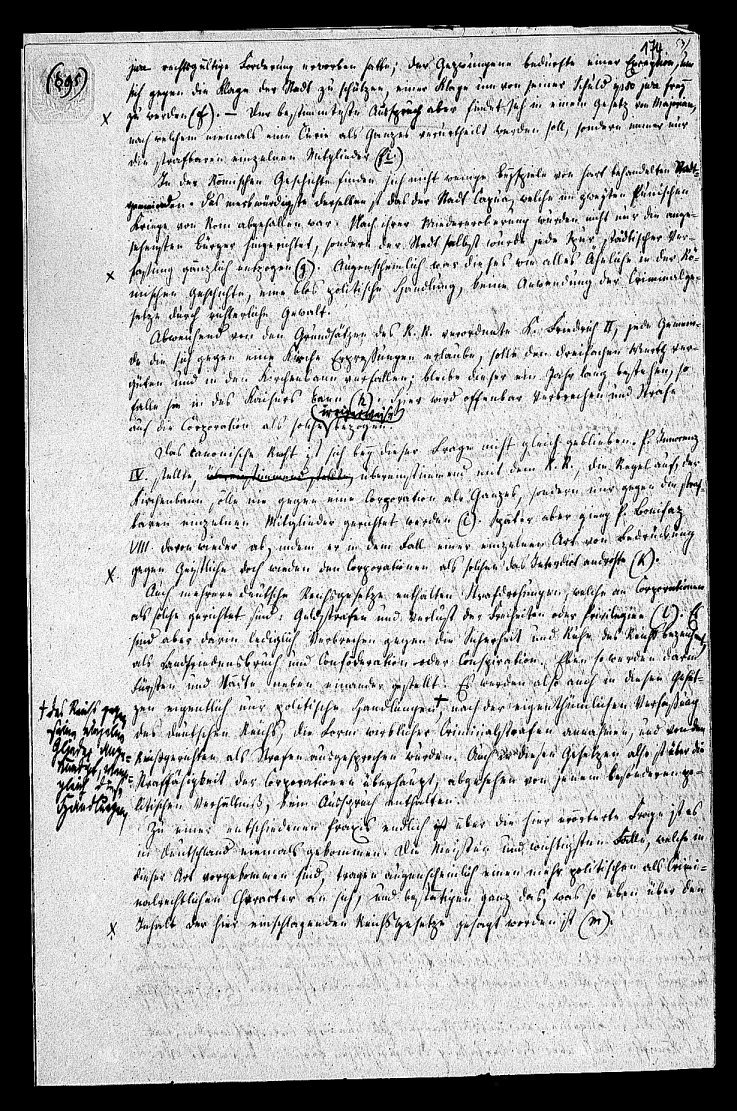 174.
(895)
jene rechtsgültige Forderung erworben hatte; der Gezwungene bedurfte einer Exception, um
sich gegen die Klage der Stadt zu schützen, einer Klage um von seiner Schuld
zu werden (f). — Der bestimmteste Ausspruch aber findet sich in einem Gesetz von Majorian,
nach welchem niemals eine Curie als Ganzes verurtheilt werden soll, sondern immer nur
die strafbaren einzelnen Mitglieder
In der Römischen Geschichte finden sich nicht wenige Beyspiele von hart behandelten Stadt-
gemeinden. Das merkwürdigste derselben ist das der Stadt Capua, welche im zweyten Punischen
Kriege von Rom abgefallen war. Nach ihrer Wiedereroberung wurden nicht nur die ange-
sehensten Bürger hingerichtet, sondern der Stadt selbst wurde jede Spur städtischer Ver-
fassung gänzlich entzogen (g). Augenscheinlich war dieses wie alles Aehnliche in der Rö-
mischen Geschichte, eine blos politische Handlung, keine Anwendung der Criminalge-
setze durch richterliche Gewalt.
Abweichend von den Grundsätzen des R. R. verordnete K. Friedrich II, jede Gemein-
de die sich gegen eine Kirche Erpressungen erlaube, solle den dreifachen Werth ver-
güten und in den Kirchenbann verfallen; bleibe dieser ein Jahr lang bestehen, so
falle sie in des Kaisers Bann (h). Hier wird offenbar Verbrechen und Strafe
irrigerweise
auf die Corporation als solche bezogen.
Das canonische Recht ist sich bey dieser Frage nicht gleich geblieben. P. Innocenz
IV. stellte, übereinstimmend mit dem R. R., die Regel auf, der
Kirchenbann solle nie gegen eine Corporation als Ganzes, sondern nur gegen die straf-
baren einzelnen Mitglieder gerichtet werden (i). Später aber ging P. Bonifaz
VIII. davon wieder ab, indem er in dem Fall einer einzelnen Art von Bedrückung
gegen Geistliche doch wieder den Corporationen als solchen das Interdict androhte (k).
Auch mehrere deutsche Reichsgesetze enthalten Strafdrohungen, welche an Corporationen
als solche gerichtet sind: Geldstrafen und Verlust der Freiheiten oder Privilegien (l). Es
sind aber darin lediglich Verbrechen gegen die Sicherheit und Ruhe des Reichs bezeichnet
als Landfriedensbruch und Conföderation oder Conspiration. Eben so werden darin
Fürsten und Städte neben einander gestellt. Es werden also auch in diesen Geset-
zen eigentlich nur politische Handlungen † nach der eigenthümlichen Verfassung
des deutschen Reichs, die Form wirklicher Criminalstrafen annahmen, und von den
Reichsgerichten als Strafen ausgesprochen wurden. Auch in diesen Gesetzen also ist über die
Straffähigkeit der Corporationen überhaupt, abgesehen von jenem besonderen po-
litischen Verhältniß, kein Ausspruch enthalten.
Zu einer entschiedenen Praxis endlich ist über die hier erörterte Frage ist es
in Deutschland niemals gekommen. Die Meisten und wichtigsten Fälle, welche in
dieser Art vorgekommen sind, tragen augenscheinlich einen mehr politischen als Crimi-
nalrechtlichen Character an sich, und bestätigen ganz das, was so eben über den
Inhalt der hier einschlagenden Reichsgesetze gesagt worden ist (m).
† des Reichs gegen
seine einzelne
Glieder ange-
kündigt,
gleich diese
Handlungen,